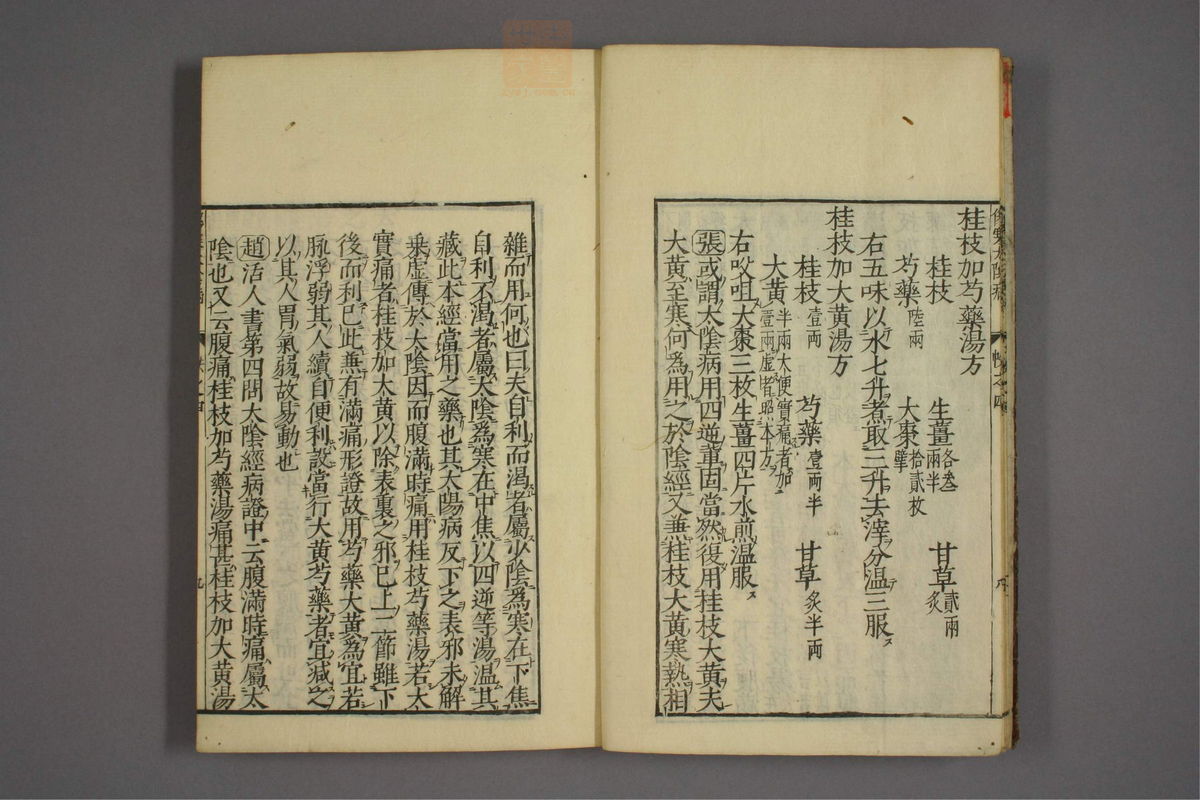 桂枝加芍藥湯方
桂枝 生薑各叁兩半 甘草貳兩炙
芍藥陸兩 大棗拾貳枚擘
右五味以水七升煮取三升去滓分温三服
桂枝加大黃湯方
桂枝壹兩 芍藥壹兩半 甘草炙半兩
大黃半兩大便實痛者加壹兩虛者照本方
右㕮咀大棗三枚生薑四片水煎温服
張或謂太陰病用四逆輩固當然復用桂枝大黃夫
大黃至寒何爲用之於陰經又兼桂枝大黃寒熱相
雜而用何也曰夫自利而渴者屬少陰爲寒在下焦
自利不渴者屬太陰爲寒在中焦以四逆等湯温其
藏此本經當用之藥也其太陽病反下之表邪未解
乗虛傳於太陰因而腹滿時痛用桂枝芍藥湯若太
實痛者桂枝加大黃以除表裏之邪已上二節雖下
後而利已此兼有滿痛形證故用芍藥大黃爲宜若
脉浮弱其人續自便利設當行大黃芍藥者宜減之
以其人胃氣弱故易動也
趙活人書第四問大陰經病證中云腹滿時痛屬太
陰也又云腹痛桂枝加芍藥湯痛甚桂枝加大黃湯
九